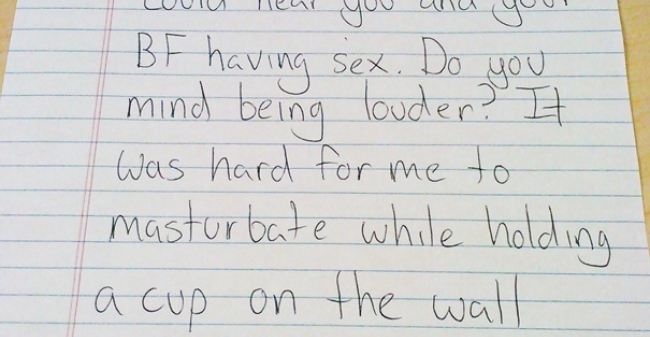 could hear you and your
BF having sex. Do you
mind being louder? It
was hard for me to
masturbate while holding
a cup on the wall